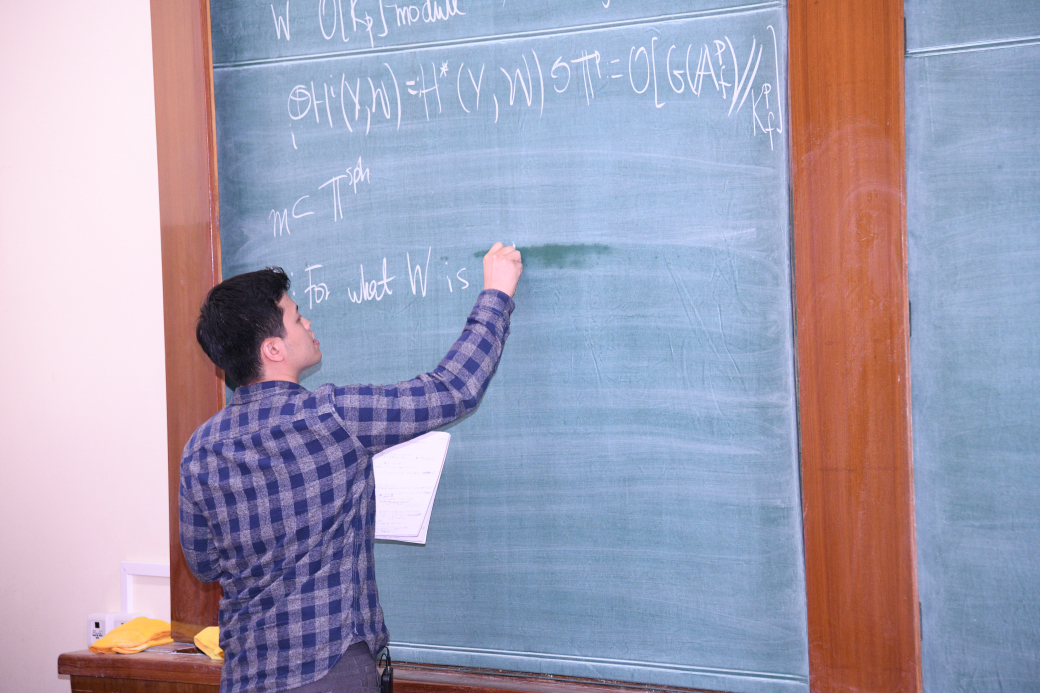 W O[Kₚ]-module
⊕ᵢ Hⁱ(Y,W) = H*(Y,W) ↺ 𝕋ᵖ := O[G(𝔸ᵖ_f)//Kᵖ_f]
m ⊂ 𝕋ˢᵖʰ
: For what W is